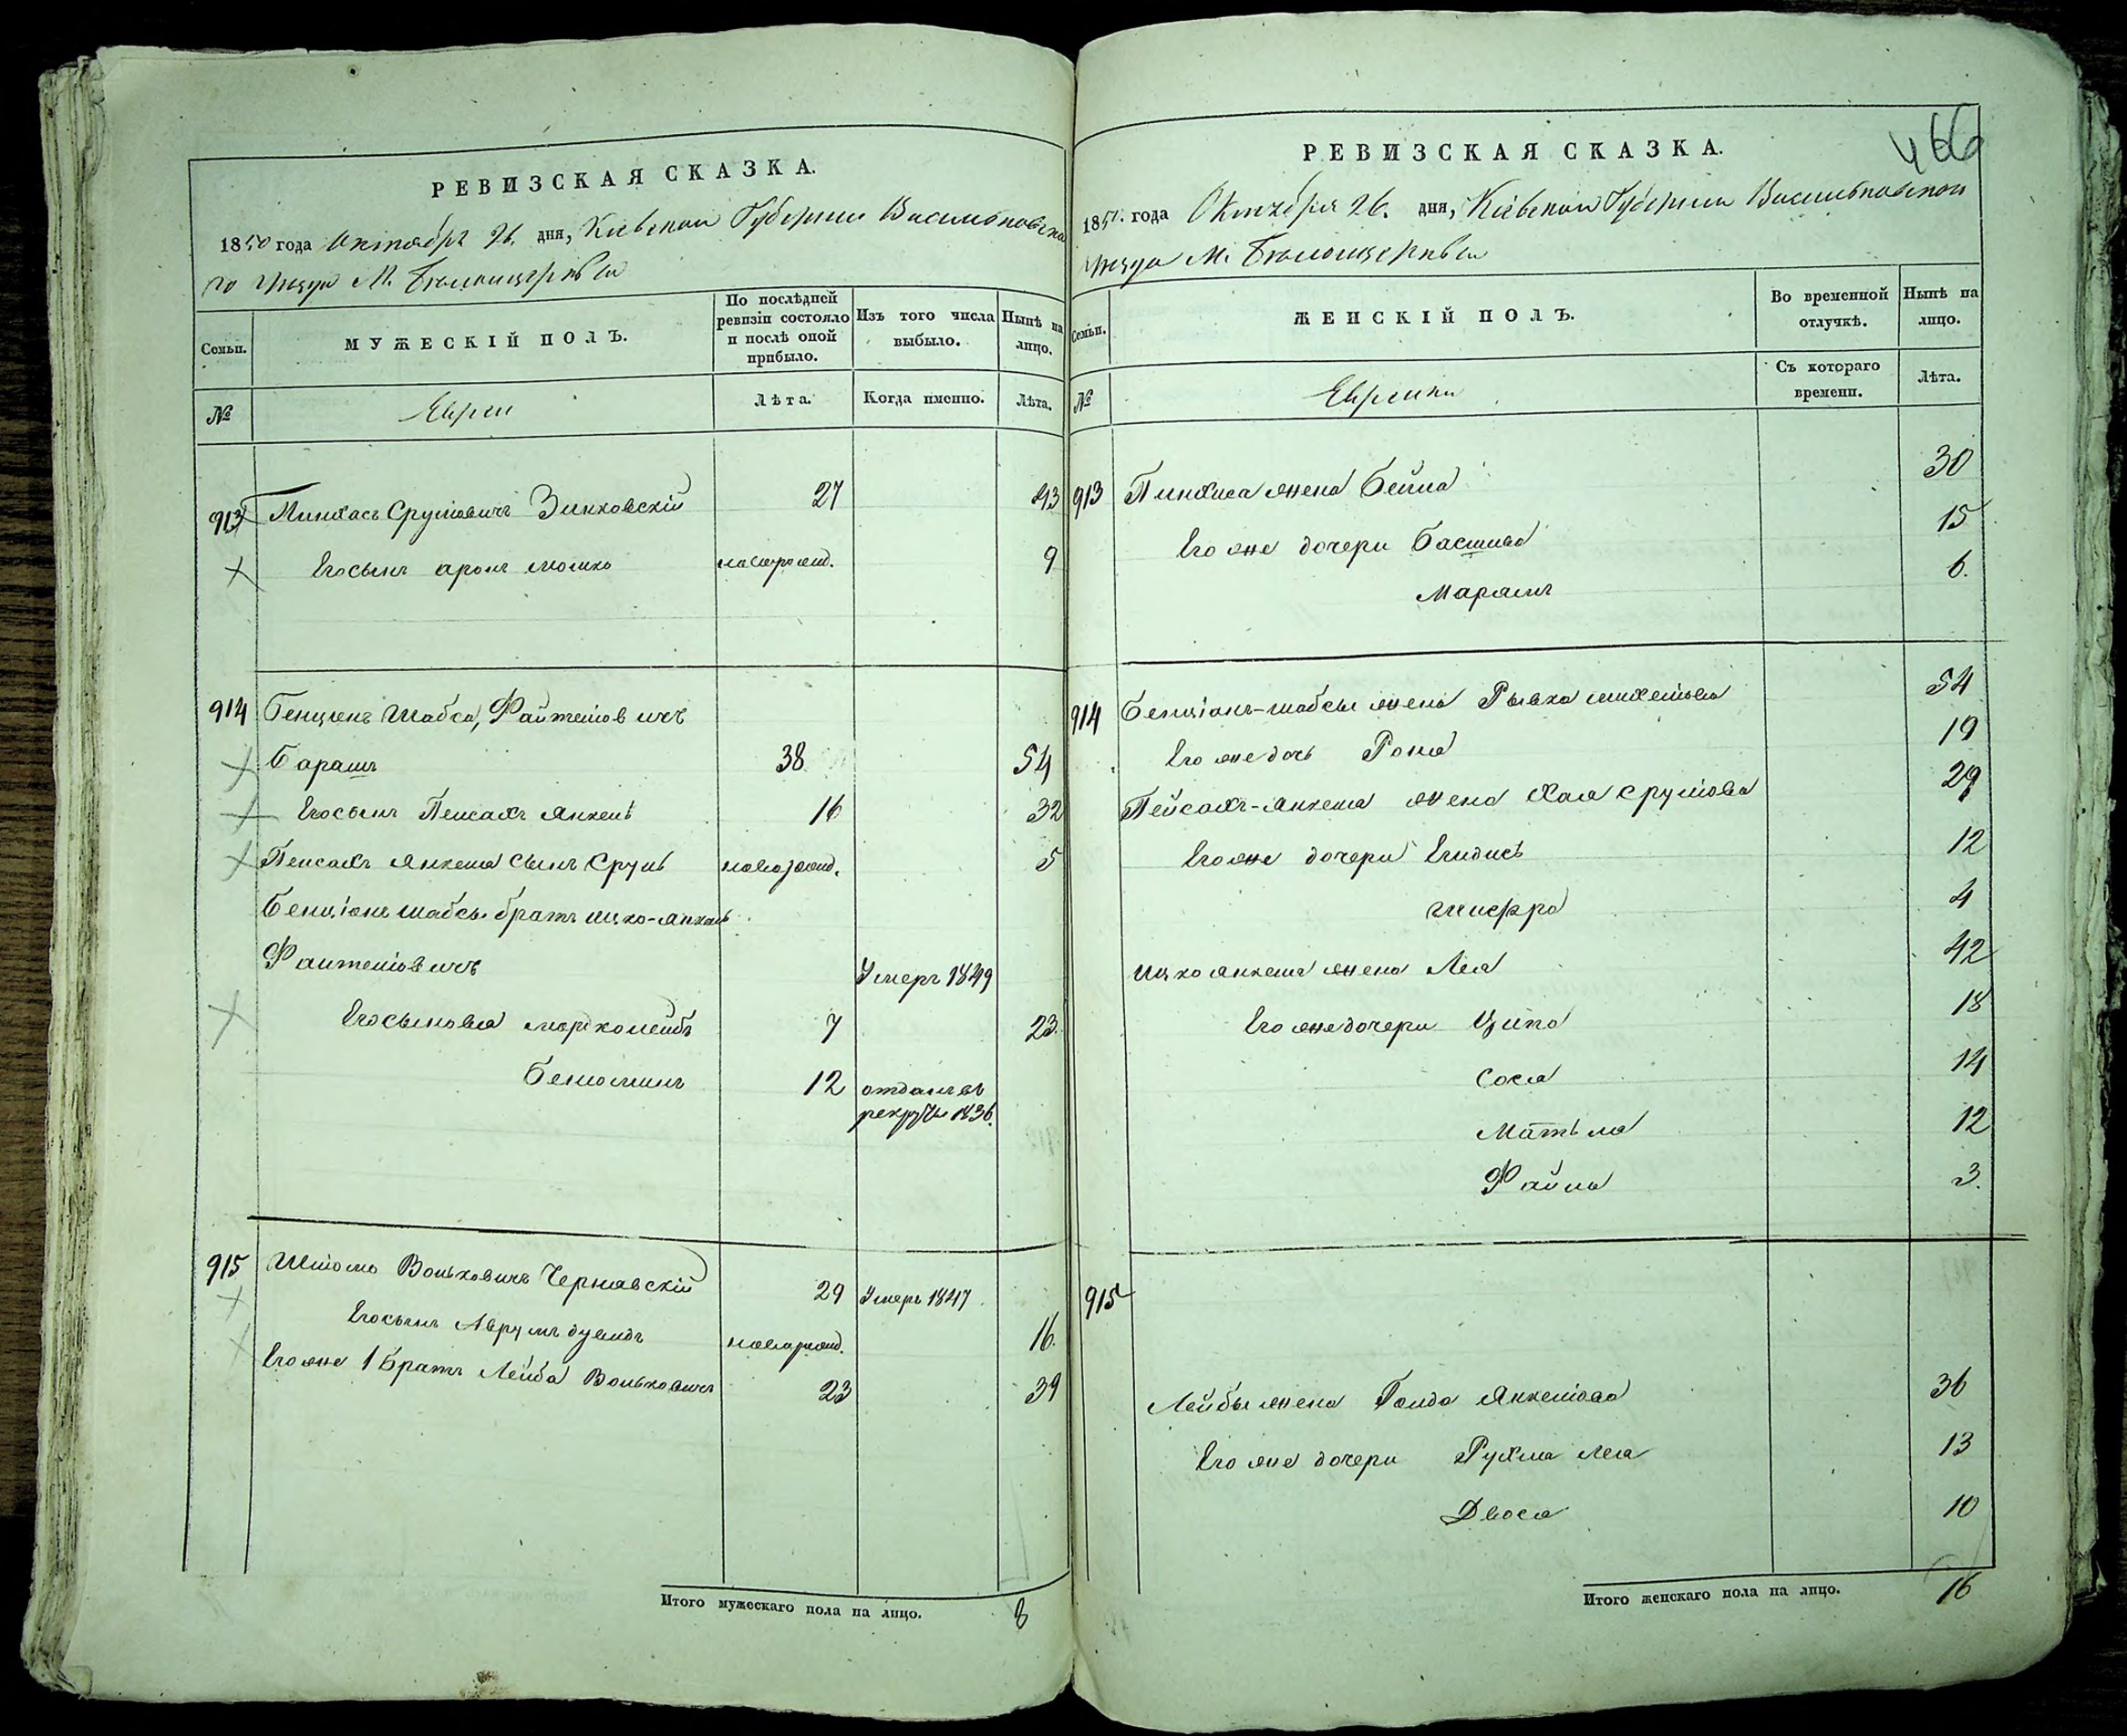 РЕВИЗСКАЯ СКАЗКА.
1850 года Октября 26. дня, Кіевской Губерніи Васильковска
го уезда М. Белоцерквы
Семьи.
МУЖЕСКІЙ ПОЛЪ.
По послѣдней ревизіи состояло и послѣ оной прибыло.
Изъ того числа выбыло.
Нынѣ на лицо.
№
Евреи
Лѣта.
Когда именно.
Лѣта.
913 Пинхасъ Срулювичъ Зинковскій 27 43
Его сынъ Аронъ Мошко новорожд. 9
914 Бенціонъ Шабса, Файтелювичъ
Барашъ 38 54
Его сынъ Пейсахъ Янкель 16 32
Пейсахъ Янкеля сынъ Сруль новорожд. 5
Бенціонъ Шабсы братъ Ицко-Янкель
Файтелювичъ Умеръ 1849
Его сыновья Мордко Лейбъ 7 23.
Бенюминъ 12 отданъ въ
рекруты 1836.
915 Шліома Вольковичъ Чернявскій 29 Умеръ 1847
Его сынъ Аврумъ Дувидъ новорожд. 16.
Его же 1 Братъ Лейба Вольковичъ 23 39
Итого мужескаго пола на лицо. 8
466
РЕВИЗСКАЯ СКАЗКА.
1850. года Октября 26. дня, Кіевской Губерніи Васильковской
уезда М. Белоцерквы
Семьи.
ЖЕНСКІЙ ПОЛЪ.
Во временной отлучкѣ.
Нынѣ на лицо.
№
Еврейки
Съ котораго времени.
Лѣта.
913 Пинхаса жена Бейла 30
Его же дочери Басшива 15
Маріамъ 6.
914 Бенціонъ-Шабсы жена Рывка Михелева 54
Его же дочь Ройза 19
Пейсахъ-Янкеля жена Хая Срулева 29
Его же дочери Енидись 12
Шифра 4
Ицко Янкеля жена Лея 42
Его же дочери Ципа 18
Сося 14
Матля 12
Файга 3.
915
Лейбы жена Голда Янкелева 36
Его же дочери Рухля Лея 13
Двося 10
Итого женскаго пола на лицо. 16